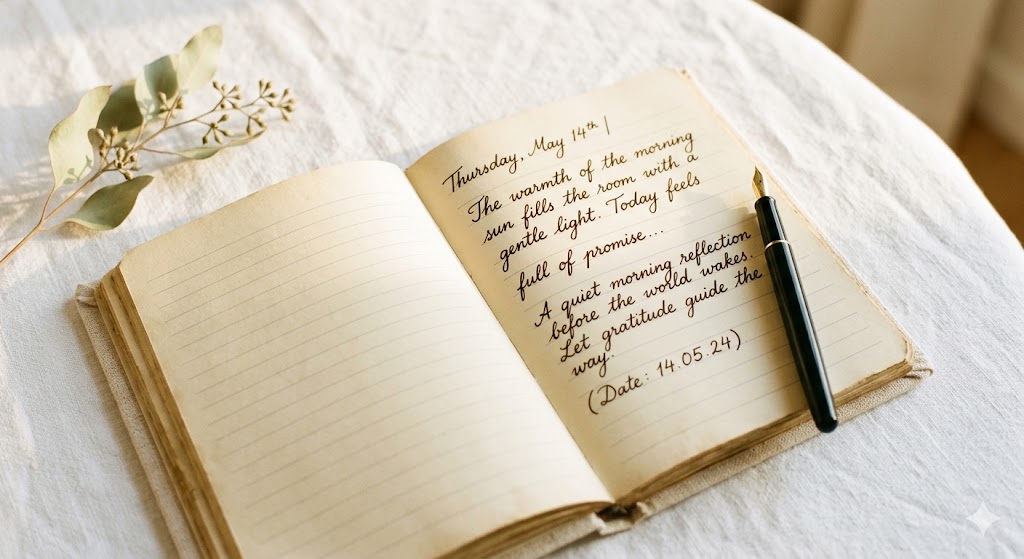 Thursday, May 14th |
The warmth of the morning
sun fills the room with a
gentle light. Today feels
full of promise...
A quiet morning reflection
before the world wakes.
Let gratitude guide the
way.
(Date: 14.05.24)